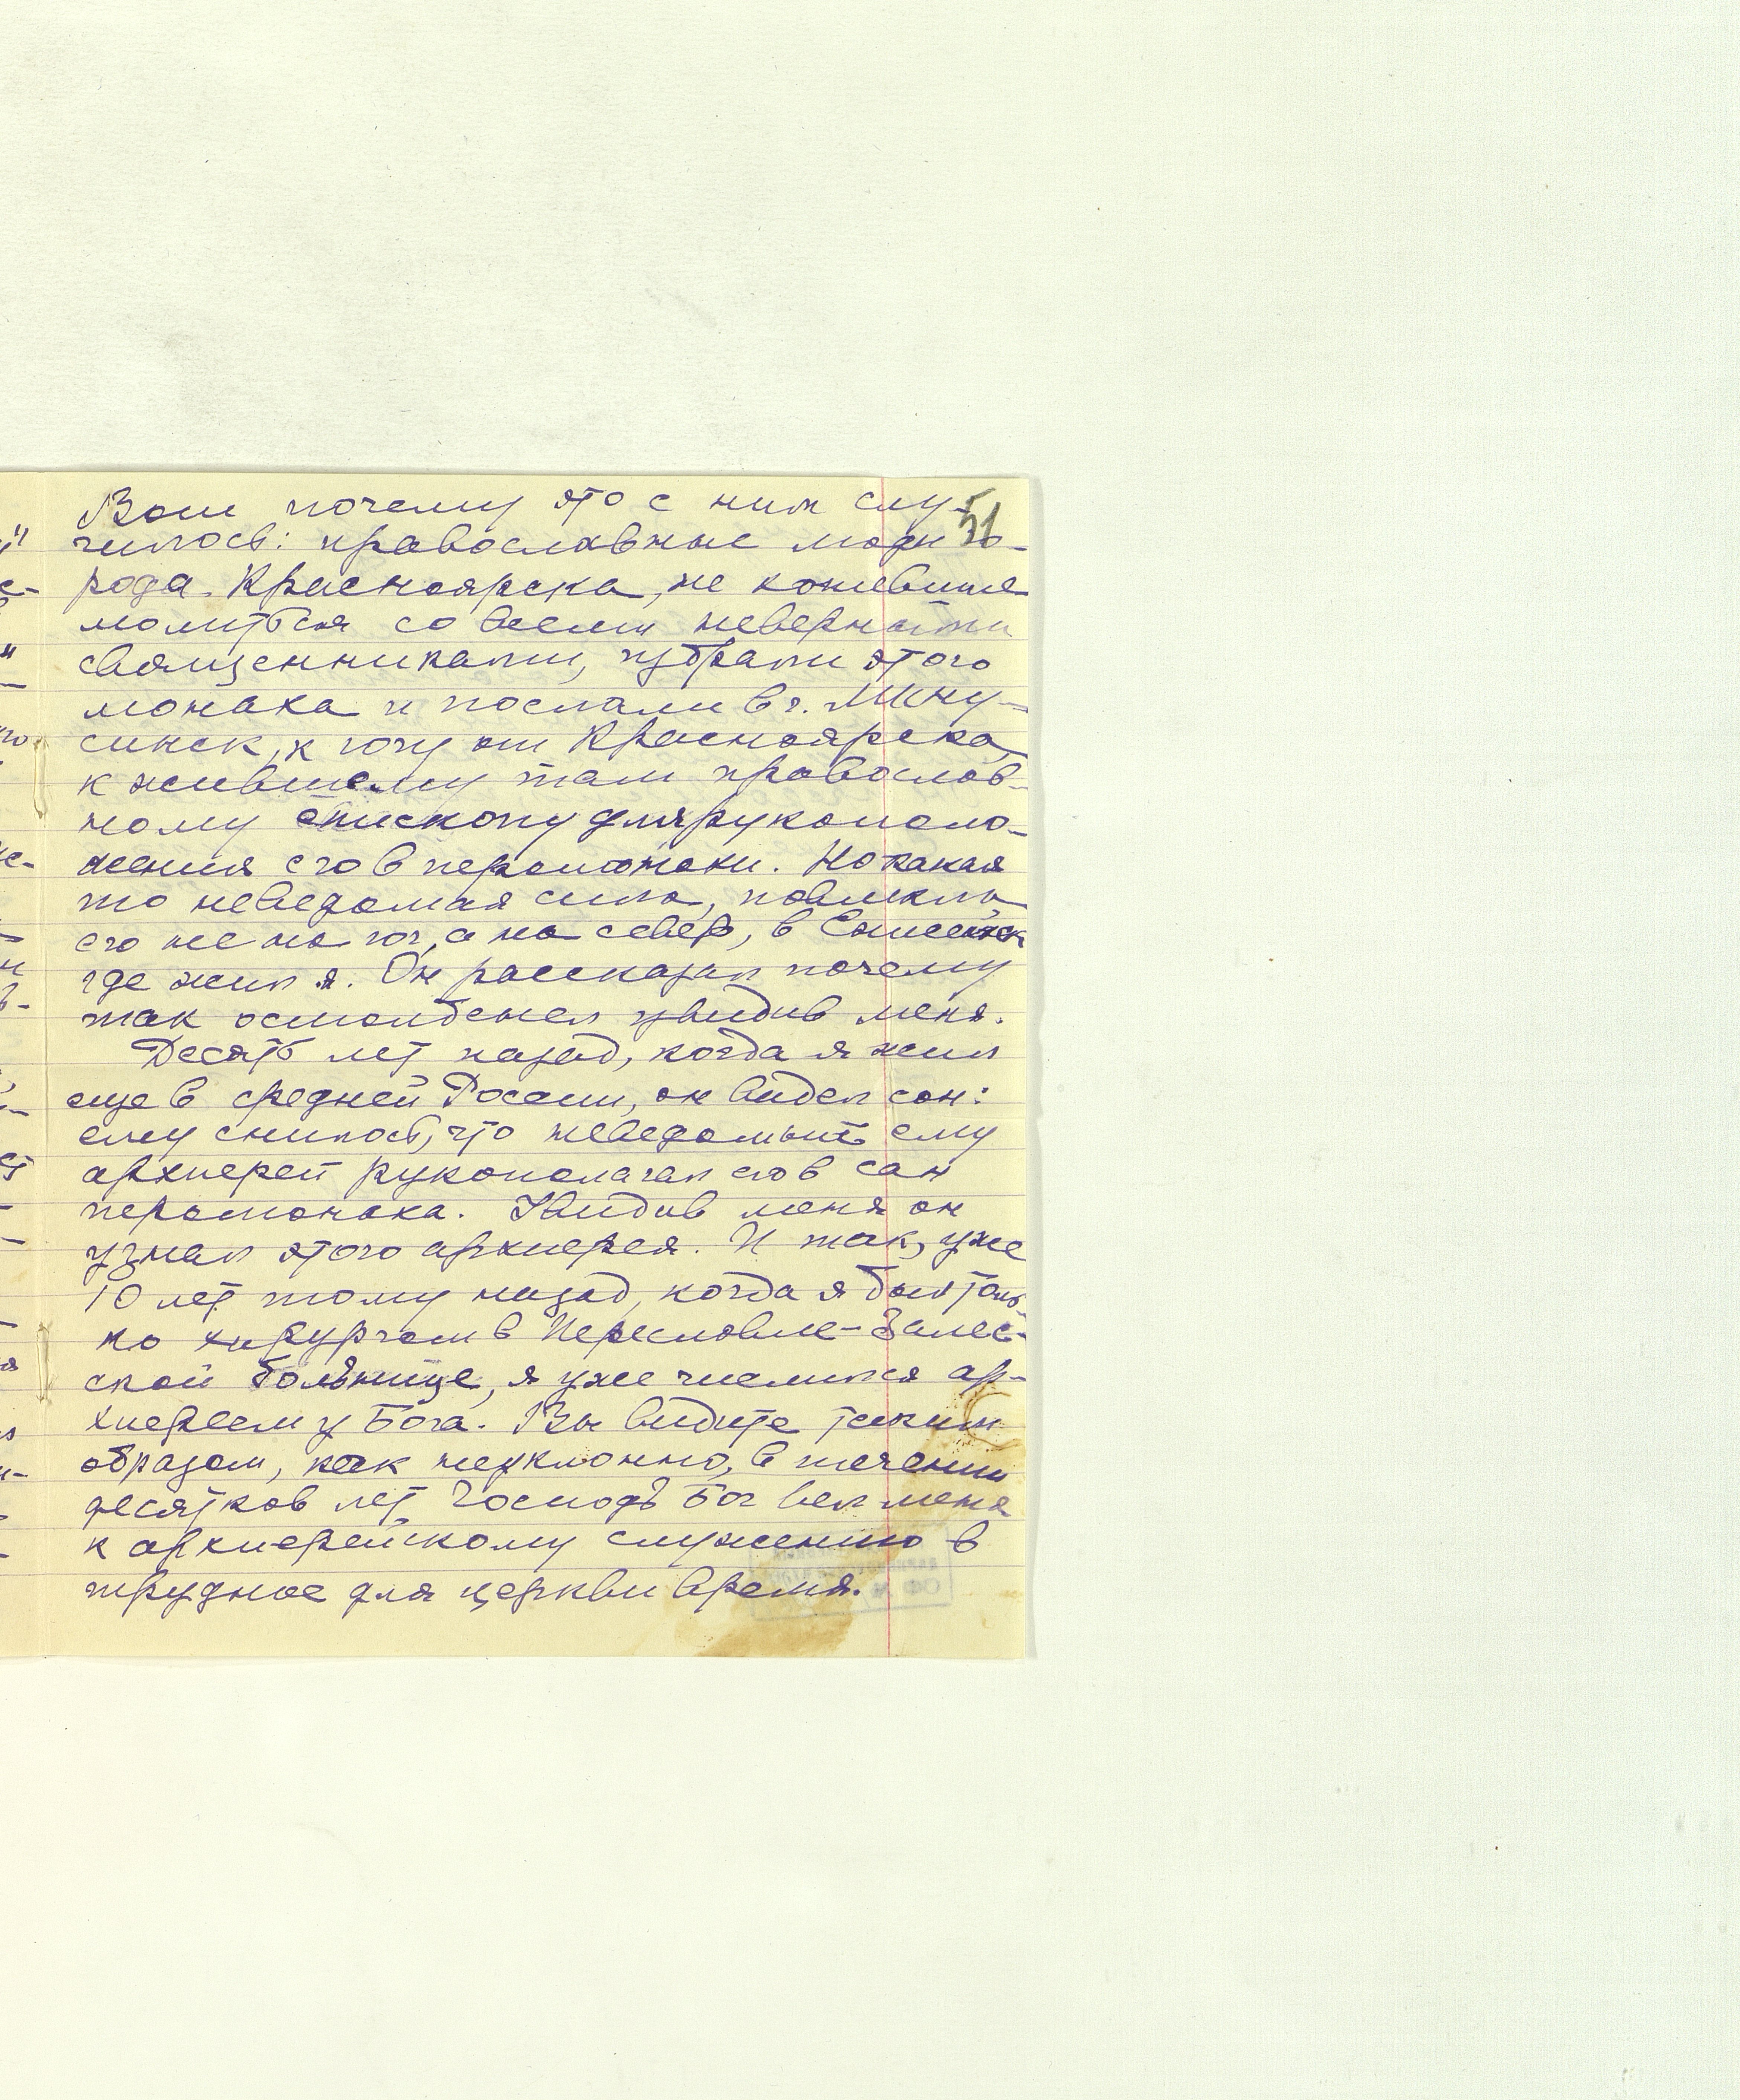 51
Вот почему это с ним слу-
чилось: православные люди го-
рода Красноярска, не хотевшие
молиться со всеми неверными
священниками, избрали этого
монаха и послали в г. Мину-
синск, к югу от Красноярска,
к жившему там православ-
ному епископу для рукополо-
жения его в иеромонахи. Но какая
то неведомая сила, повлекла
его не на юг, а на север, в Енисейск
где жил я. Он рассказал почему
так остолбенел увидив меня.
Десять лет назад, когда я жил
еще в средней России, он видел сон:
ему снилось, что неведомый ему
архиерей рукополагал его в сан
иеромонаха. Увидив меня он
узнал этого архиерея. И так, уже
10 лет тому назад, когда я был толь-
ко хирургом в Переславле-Залес-
ской больнице, я уже числился ар-
хиереем у Бога. Вы видите таким
образом, как неуклонно, в течении
десятков лет Господь Бог вел меня
к архиерейскому служению в
трудное для церкви время.